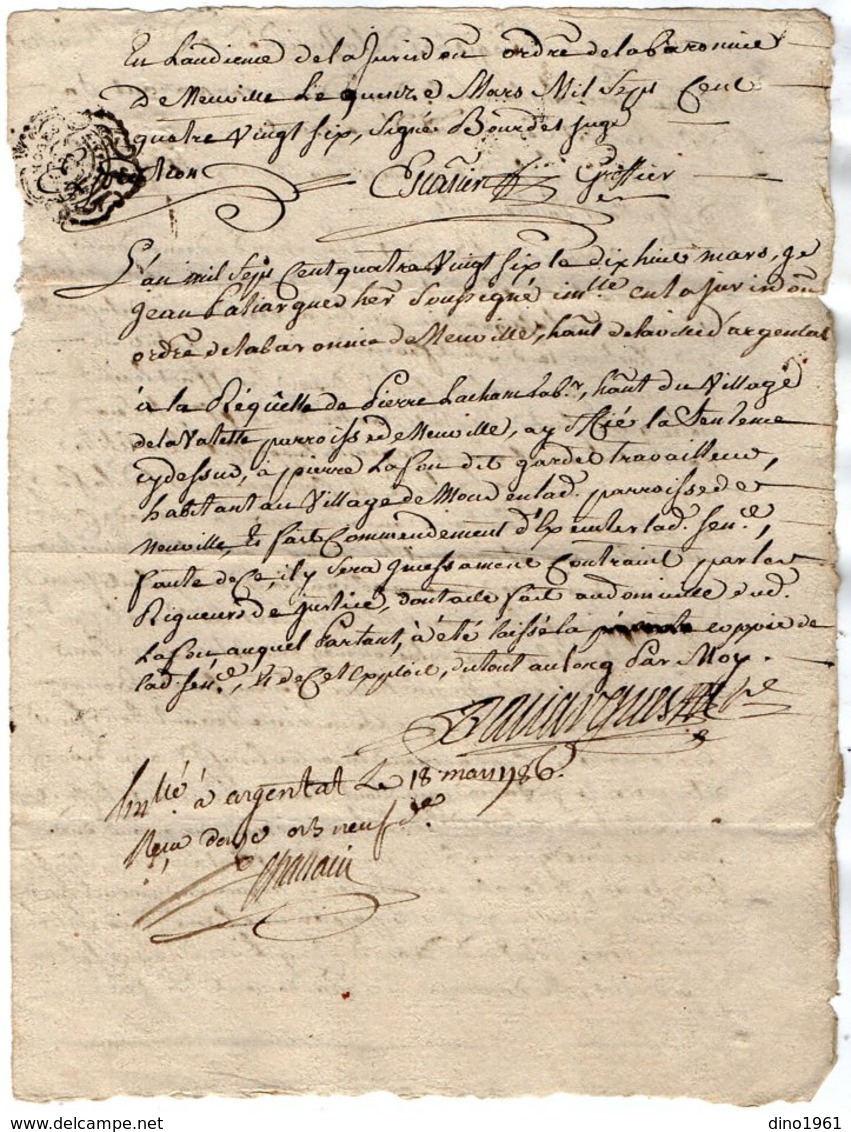 En Laudience de la Jurisdon ordre de la Baronnie
de Neuville Le quinze Mars Mil Sept Cent
quatre vingt six, Signé Bourdet juge
Escanier Greffier
L'an mil Sept Cent quatre vingt six le dix huit mars, je
Jean her Soussigné imlle en la Jurisdon
ordre de la baronnie de Neuville, hant de la ville d'argentat
à la Réquette de Pierre Lacham labr, hant du Village
de la Valette parroisse de Neuville, ay Sfié la Sentence
cy dessus, à pierre Lafon dit garde travailleur,
habitant au Village de en lad. parroisse de
Neuville, Et fait Commendement d'Executer lad. Sence,
faute de Ce, il y sera Contraint par les
Rigueurs de justice, dont acte fait au domicille dud.
Lafon auquel Partant, à été laissé la coppie de
lad. Sence, & de Cet Exploit, du tout au long Par Moy.
à argentat Le 18 mars 1786.
Reçu dix neuf d.
dino1961